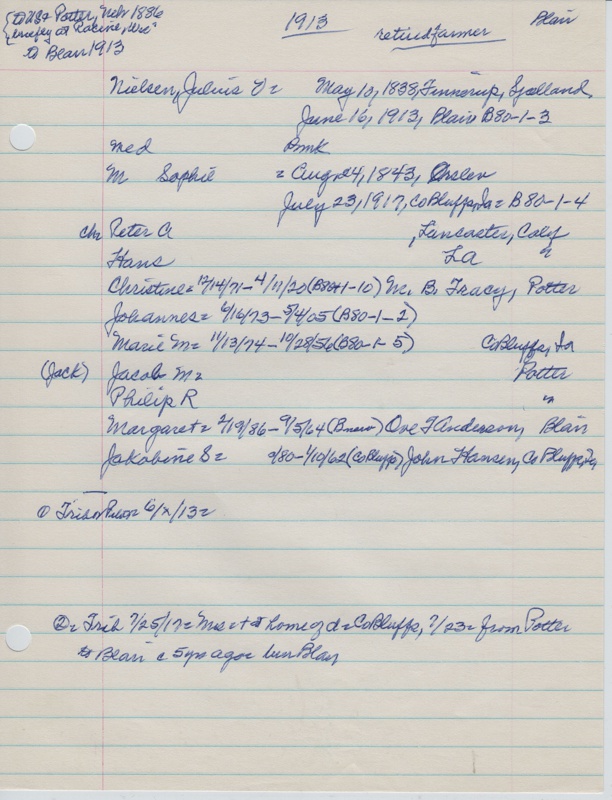 to US & Potter, Nebr 1886
briefly at Racine, Wis
to Blair 1913
1913
retired farmer
Blair
Nielsen, Julius = May 10, 1838, Finnerup, Sjolland,
June 16, 1913, Blair B80-1-3
med Dmk
M Sophie = Aug 24, 1843,
July 23, 1917, CoBluffs, Ia = B80-1-4
chr Peter A , Lancaster, Calif
Hans LA "
Christine = 12/14/71 - 4/11/20 (B80-1-10) M. B. Tracy, Potter
Johannes = 6/16/73 - 5/4/05 (B80-1-2)
Marie M = 11/13/74 - 10/28/56 (B80-1-5) CoBluffs, Ia
(Jack) Jacob M = Potter
Philip R "
Margaret = 2/19/86 - 9/5/64 (Bmaus) Ove T Anderson, Blair
Jakobine S = 9/80 - 1/10/62 (CoBluffs) John Hansen, CoBluffs, Ia
① Trib or Pilot = 6/x/13 =
② = Trib 7/25/17 = Mrs + at home of d = CoBluffs, 7/23 = from Potter
to Blair c 5 yrs ago = bur Blair